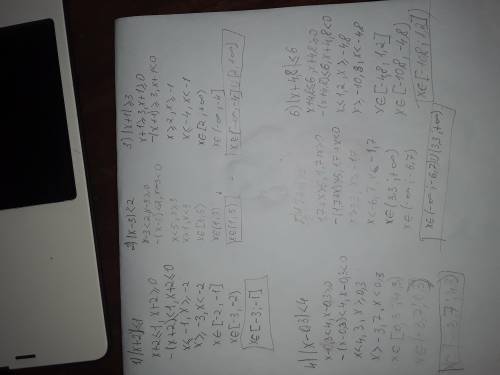 1) |x+2|≤1
x+2≤1, x+2≥0
-(x+2)≤1, x+2≤0
x≤-1, x≥-2
x≥-3, x<-2
x∈[-2, -1]
x∈[-3, -2)
x∈[-3; -1]
2) |x-3|<2
x-3<2, x-3≥0
x<5, x≥3
x>1, x<3
x∈[3, 5)
x∈(1, 3)
x∈(1, 5)
3) |x+1|≥3
x+1≥3, x+1≥0
-(x+1)≥3, x+1<0
x≥2, x≥-1
x≤-4, x<-1
x∈[2, +∞)
x∈(-∞, -4]
x∈(-∞, -4]∪[2, +∞)
4) |x-0,3|<4
x-0,3<4, x-0,3≥0
-(x-0,3)<4, x-0,3<0
x<4,3, x≥0,3
x>-3,7, x<0,3
x∈[0,3; 4,3)
-(1,7+x)>5, 1,7+x<0
x<-6,7, x<-1,7
x∈(3,3, +∞)
x∈(-∞, -6,7)
x∈(-∞; -6,7)∪(3,3; +∞)
6) |x+4,8|≤6
x+4,8≤6, x+4,8≥0
-(x+4,8)≤6, x+4,8<0
x≤1,2, x≥-4,8
x≥-10,8, x<-4,8
x∈[-4,8, 1,2]
x∈[-10,8, -4,8)
x∈[-10,8; 1,2]